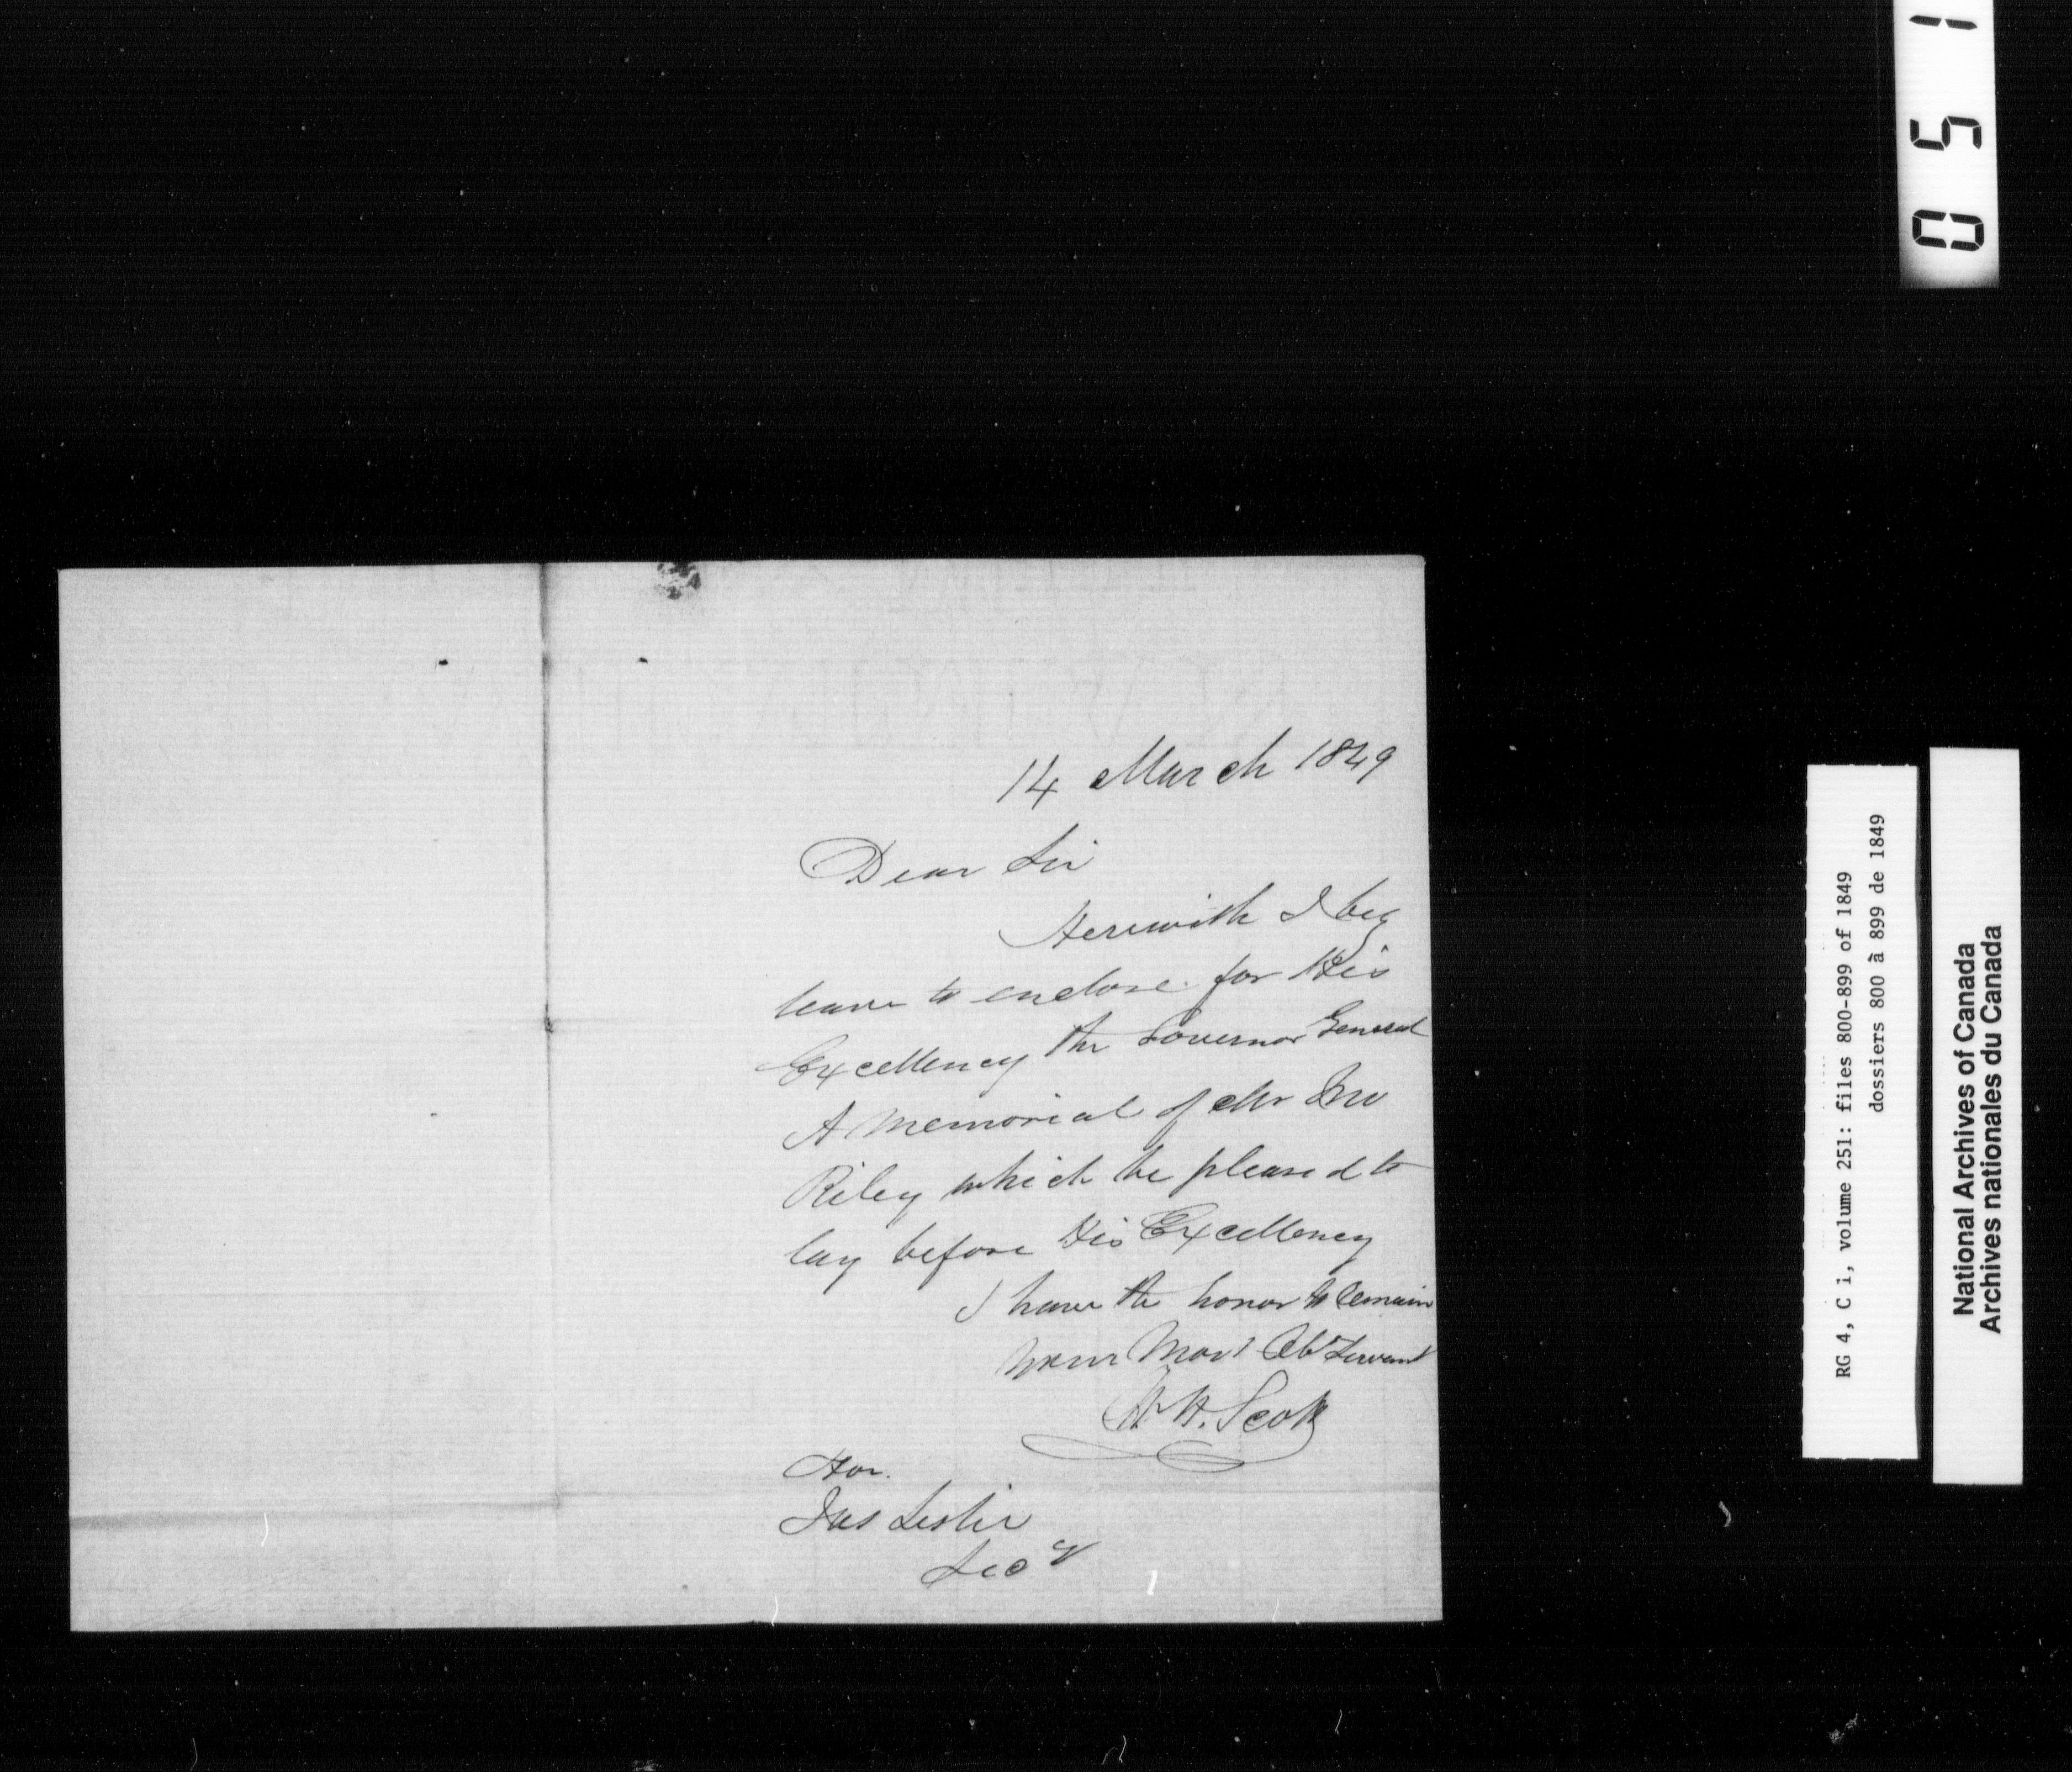 14 March 1849
Dear Sir
Herewith I beg
leave to enclose for His
Excellency the Governor General
A Memorial of Mr Jno
Riley which be pleased to
lay before His Excellency
I have the honor to remain
Your Most Obt Servant
W. H. Scott
Hon.
Jas Leslie
Secy
051
RG 4, C i, volume 251: files 800-899 of 1849
dossiers 800 à 899 de 1849
National Archives of Canada
Archives nationales du Canada